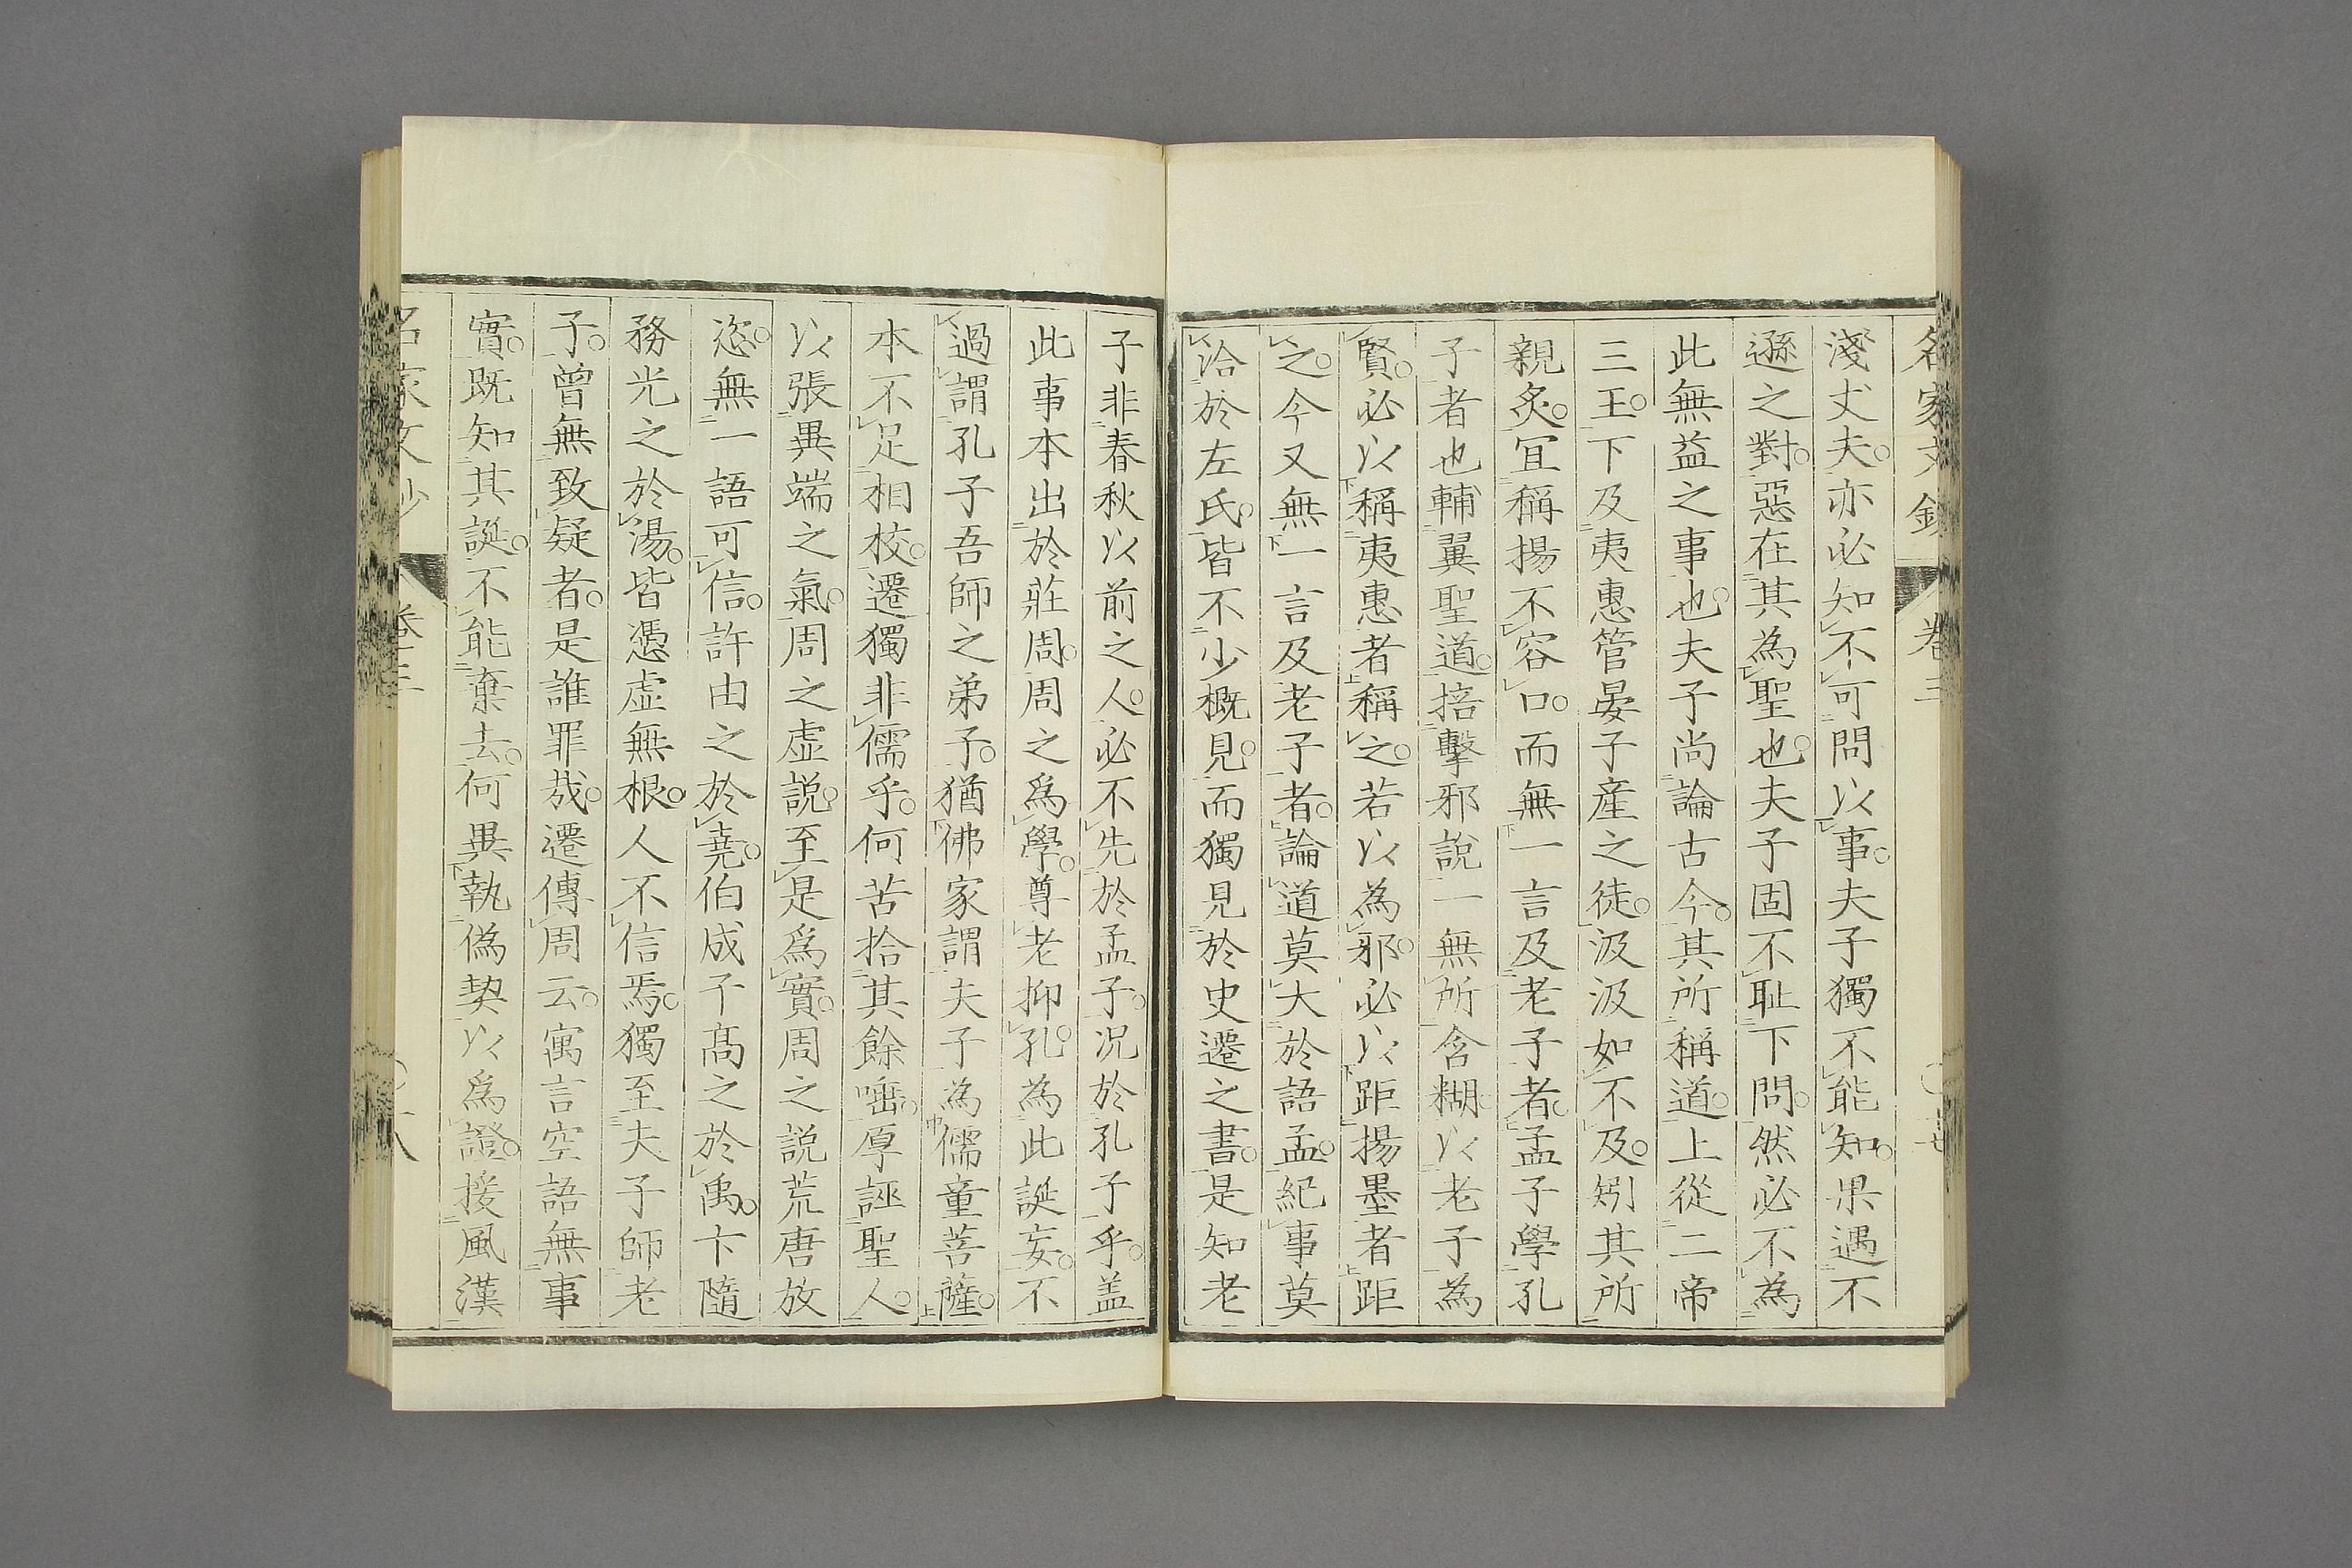 名家文鈔 卷三 〇 十七
淺丈夫。亦必知不可問以事。夫子獨不能知。果遇不
遜之對。惡在其為聖也。夫子固不恥下問。然必不為
此無益之事也。夫子尚論古今。其所稱道。上從二帝
三王。下及夷惠管晏子產之徒。汲汲如不及。矧其所
親炙。冝稱揚不容口。而無一言及老子者。孟子學孔
子者也。輔翼聖道。掊擊邪說一無所含糊。以老子為
賢。必以稱夷惠者稱之。若以為邪。必以距揚墨者距
之。今又無一言及老子者。論道莫大於語孟。紀事莫
洽於左氏。皆不少概見。而獨見於史遷之書。是知老
子非春秋以前之人。必不先於孟子。况於孔子乎。盖
此事本出於莊周。周之爲學。尊老抑孔。為此誕妄。不
過謂孔子吾師之弟子。猶佛家謂夫子為儒童菩薩。
本不足相校。遷獨非儒乎。何苦拾其餘唾。厚誣聖人。
以張異端之氣。周之虛説。至是爲實。周之説荒唐放
恣。無一語可信。許由之於堯。伯成子髙之於禹。卞隨
務光之於湯。皆憑虛無根。人不信焉。獨至夫子師老
子。曾無致疑者。是誰罪哉。遷傳周云。寓言空語無事
實。既知其誕。不能棄去。何異執僞契以爲證。接風漢
名家文鈔 卷三 〇 十八